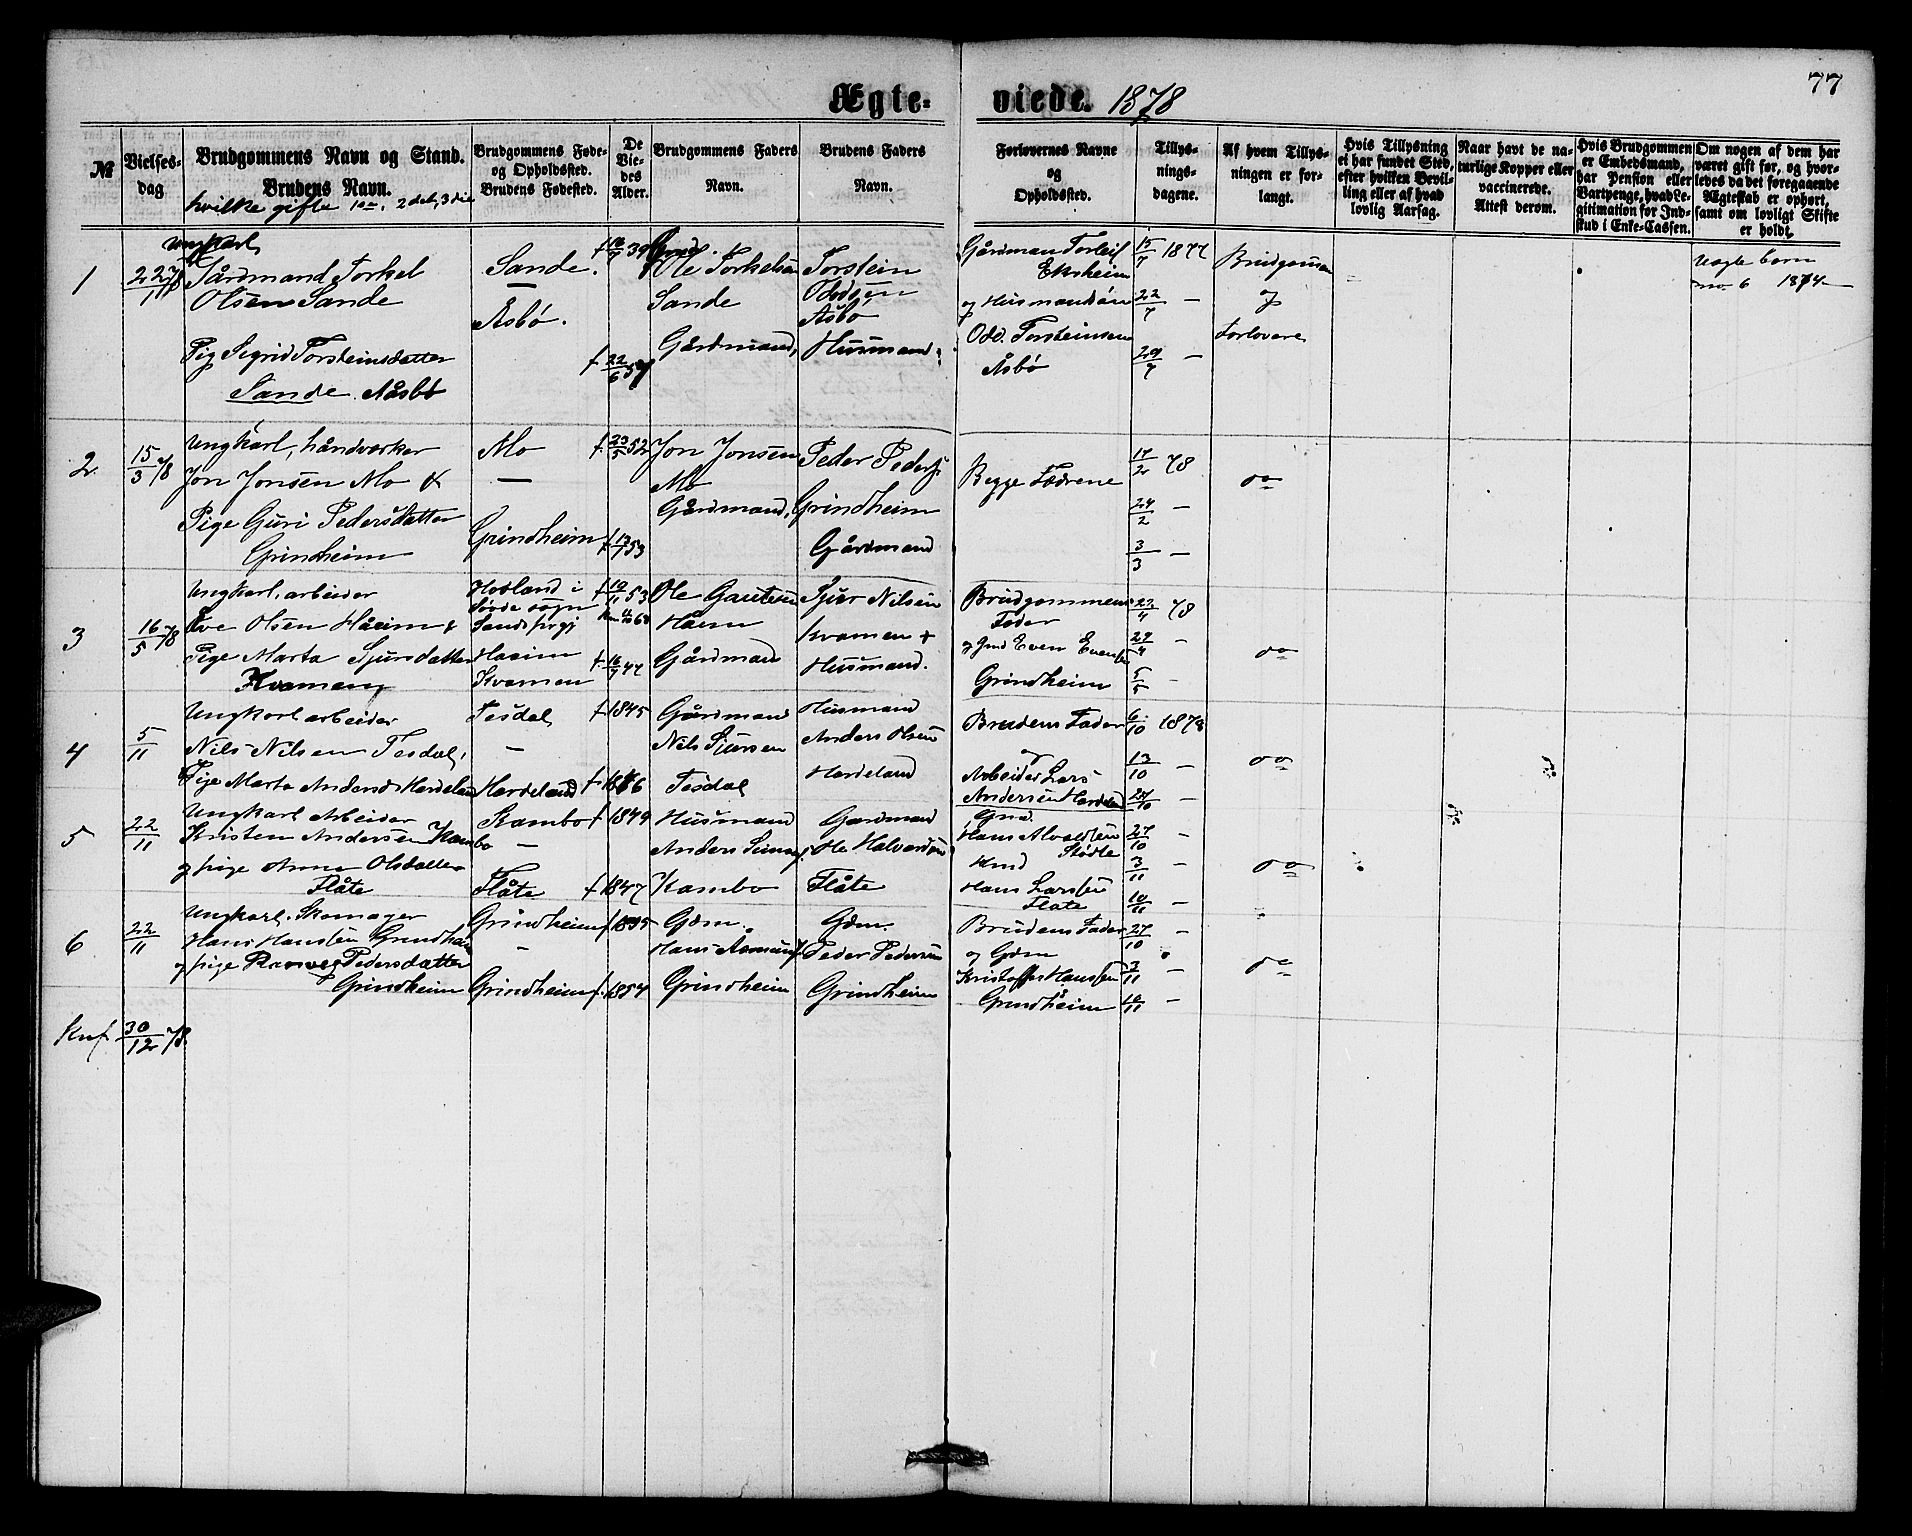 77
Ægteviede. 1878
№
Vielsesdag
Brudgommens Navn og Stand.
Brudens Navn.
hvilke gifte 1ste, 2det, 3die
Brudgommens Føde- og Opholdssted.
Brudens Fødested.
De Viedes Alder.
Brudgommens Faders Navn.
Brudens Faders Navn.
Forlovernes Navne og Opholdssted.
Tillysningsdagene.
Af hvem Tillysningen er forlangt.
Hvis Tillysning ei har fundet Sted, efter hvilken Bevilling eller af hvad lovlig Aarsag.
Naar havt de naturlige Kopper eller vaccinerede. Attest derom.
Hvis Brudgommen er Embedsmand, har Pension eller Vartpenge, hvad Legitimation for Indskud i Enke-Cassen.
Om nogen af dem har været gift før, og hvorledes da det foregaaende Ægteskab er ophørt, samt om lovligt Skifte er holdt.
1
Ungkarl
Gårdmand Torkel
Olsen Sande
Pig Sigrid Torsteinsdatter
Sande. Aåsbø
Sande.
—
Åsbø.
f 22/6 57
Ole Torkelsen
Sande
Gårdmand,
Torstein
Oddsen
Åsbø
Husmand
Gårdman Torleif
Eksheim
og Husmandsøn
Odd. Torsteinsen
Åsbø
15/7 1877
22/7 —
29/7 —
Brudgommen
og
Forlovere
Uægte barn
no. 6 1874
2
15/3 78
Ungkarl, håndverker
Jon Jonsen Mo &
Pige Guri Pedersdatter
Grindheim
Mo
—
Grindheim
f. 23/5 52
Jon Jonsen
Mo
Gårdmand,
Peder Peders.
Grindheim
Gårdmand
Begge Fædrene
17/2 78
24/2 —
3/3 —
do
3
16/5 78
Ungkarl, arbeider
Ove Olsen Håeim &
Pige Marta Sjursdatter
Kvamen
Hovland i
Søvde sogn
Sands prgj
Haeim
Kvamen
f. 10/11 53
Ole Gautesen
Håeim
Gårdman
Sjur Nilsen
Kvamen +
Husmand.
Brudgommens
Fader
og Gmd Even Evensen
Grindheim
78
5/5 -
do
4
5/11
Ungkarl arbeider
Nils Nilsen Tesdal,
Pige Marta Andersd. Hardeland
Tesdal
—
Hardeland
f 1845
Gårdmand
Nils Sjursen
Tesdal
Husmand
Anders Olsen
Hardeland
Brudens Fader
og
Arbeider Lars
Andersen Hardeland
6/10 1878
13/10 —
20/10 —
do
5
22/11
Ungkarl Arbeider
Kristen Andersen Kambo
og pige Anna Olsdatter
Flåte
Kambo
—
Flåte
f 1849
f 1847
Husmand
Anders
Kambo
Gaardmand
Ole Halvardsen
Flåte
Gmd.
Hans Alvaldsen
Stødle
Hmd
Hans Larsen
Flate
27/10 —
3/11 —
10/11 —
do
6
22/11
Ungkarl. Skomager
Hans Hansen Grindheim
og pige Ranveig Pedersdatter
Grindheim
Grindheim
—
Grindheim
f. 1854
Gdm.
Hans Aamunds.
Grindheim
Gdm.
Peder Pedersen
Grindheim
Brudens Fader
og Gdm
Kristoffer Hansen
Grindheim
27/10
3/11 —
10/11 —
do
Knf 30/12 78.